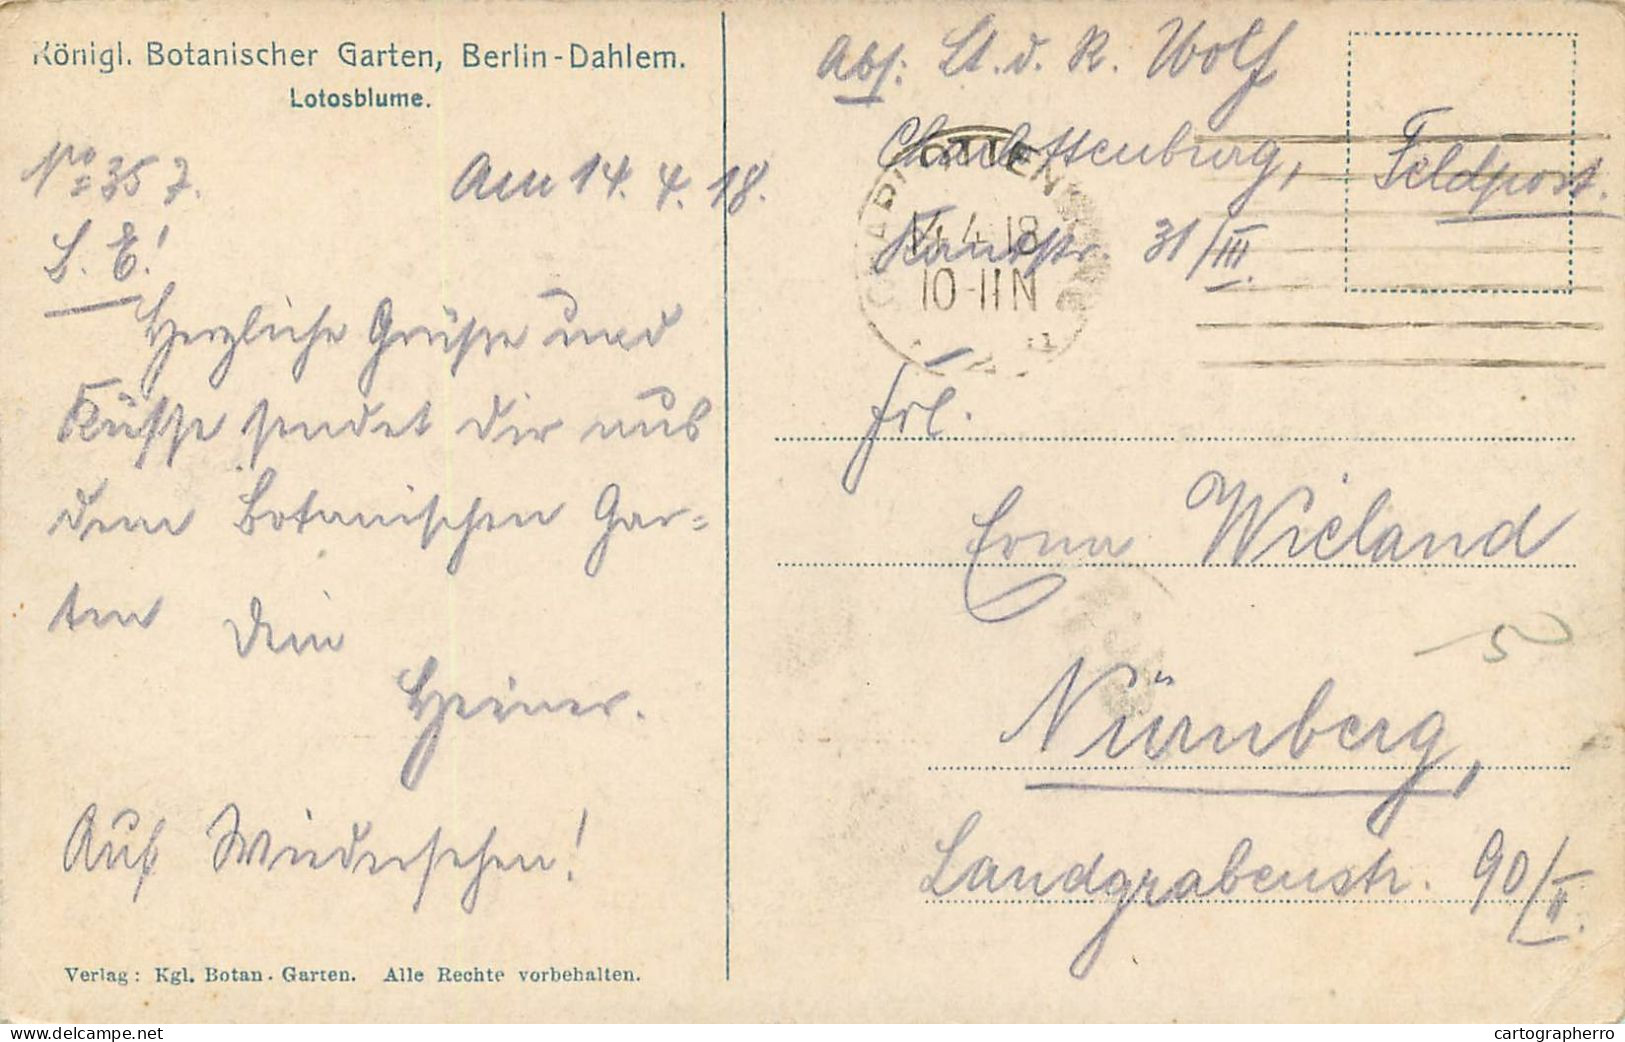 Königl. Botanischer Garten, Berlin-Dahlem.
Lotosblume.
No 357.
Am 14. 4. 18.
L. E.!
Herzliche Grüße und
Küsse sendet dir aus
dem Botanischen Gar=
ten Dein
Heiner.
Auf Wiedersehen!
Verlag: Kgl. Botan. Garten. Alle Rechte vorbehalten.
Abs: Lt. d. R. Wolf
Charlottenburg,
Kantstr. 31/III.
Feldpost.
CHARLOTTENBURG
14.4.18
10-11N
Frl.
Erna Wieland
Nürnberg,
Landgrabenstr. 90/II.
5
delcampe.net
cartographerro